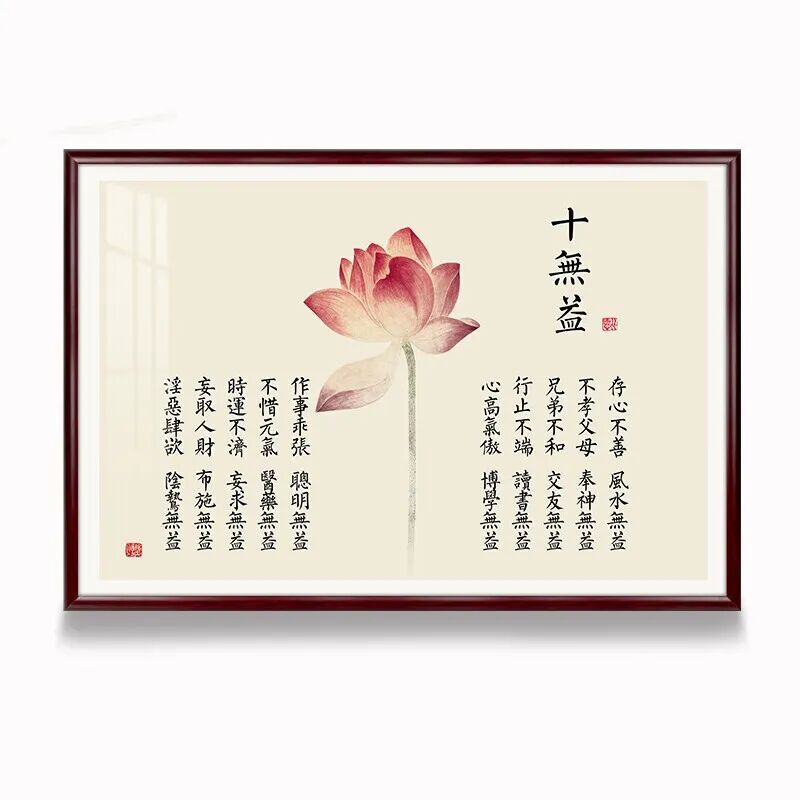 十無益
存心不善 風水無益
不孝父母 奉神無益
兄弟不和 交友無益
行止不端 讀書無益
心高氣傲 博學無益
作事乖張 聰明無益
不惜元氣 醫藥無益
時運不濟 妄求無益
妄取人財 布施無益
淫惡肆欲 陰騭無益